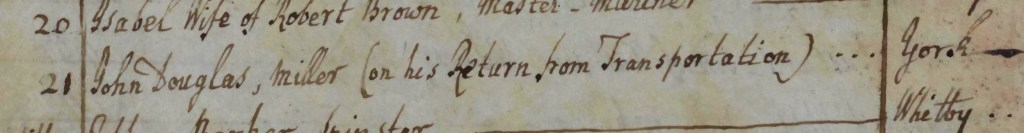 20 Isabel Wife of Robert Brown, Master-Mariner
21 John Douglas, Miller (on his Return from Transportation) ... York
Spinster Whitby ..